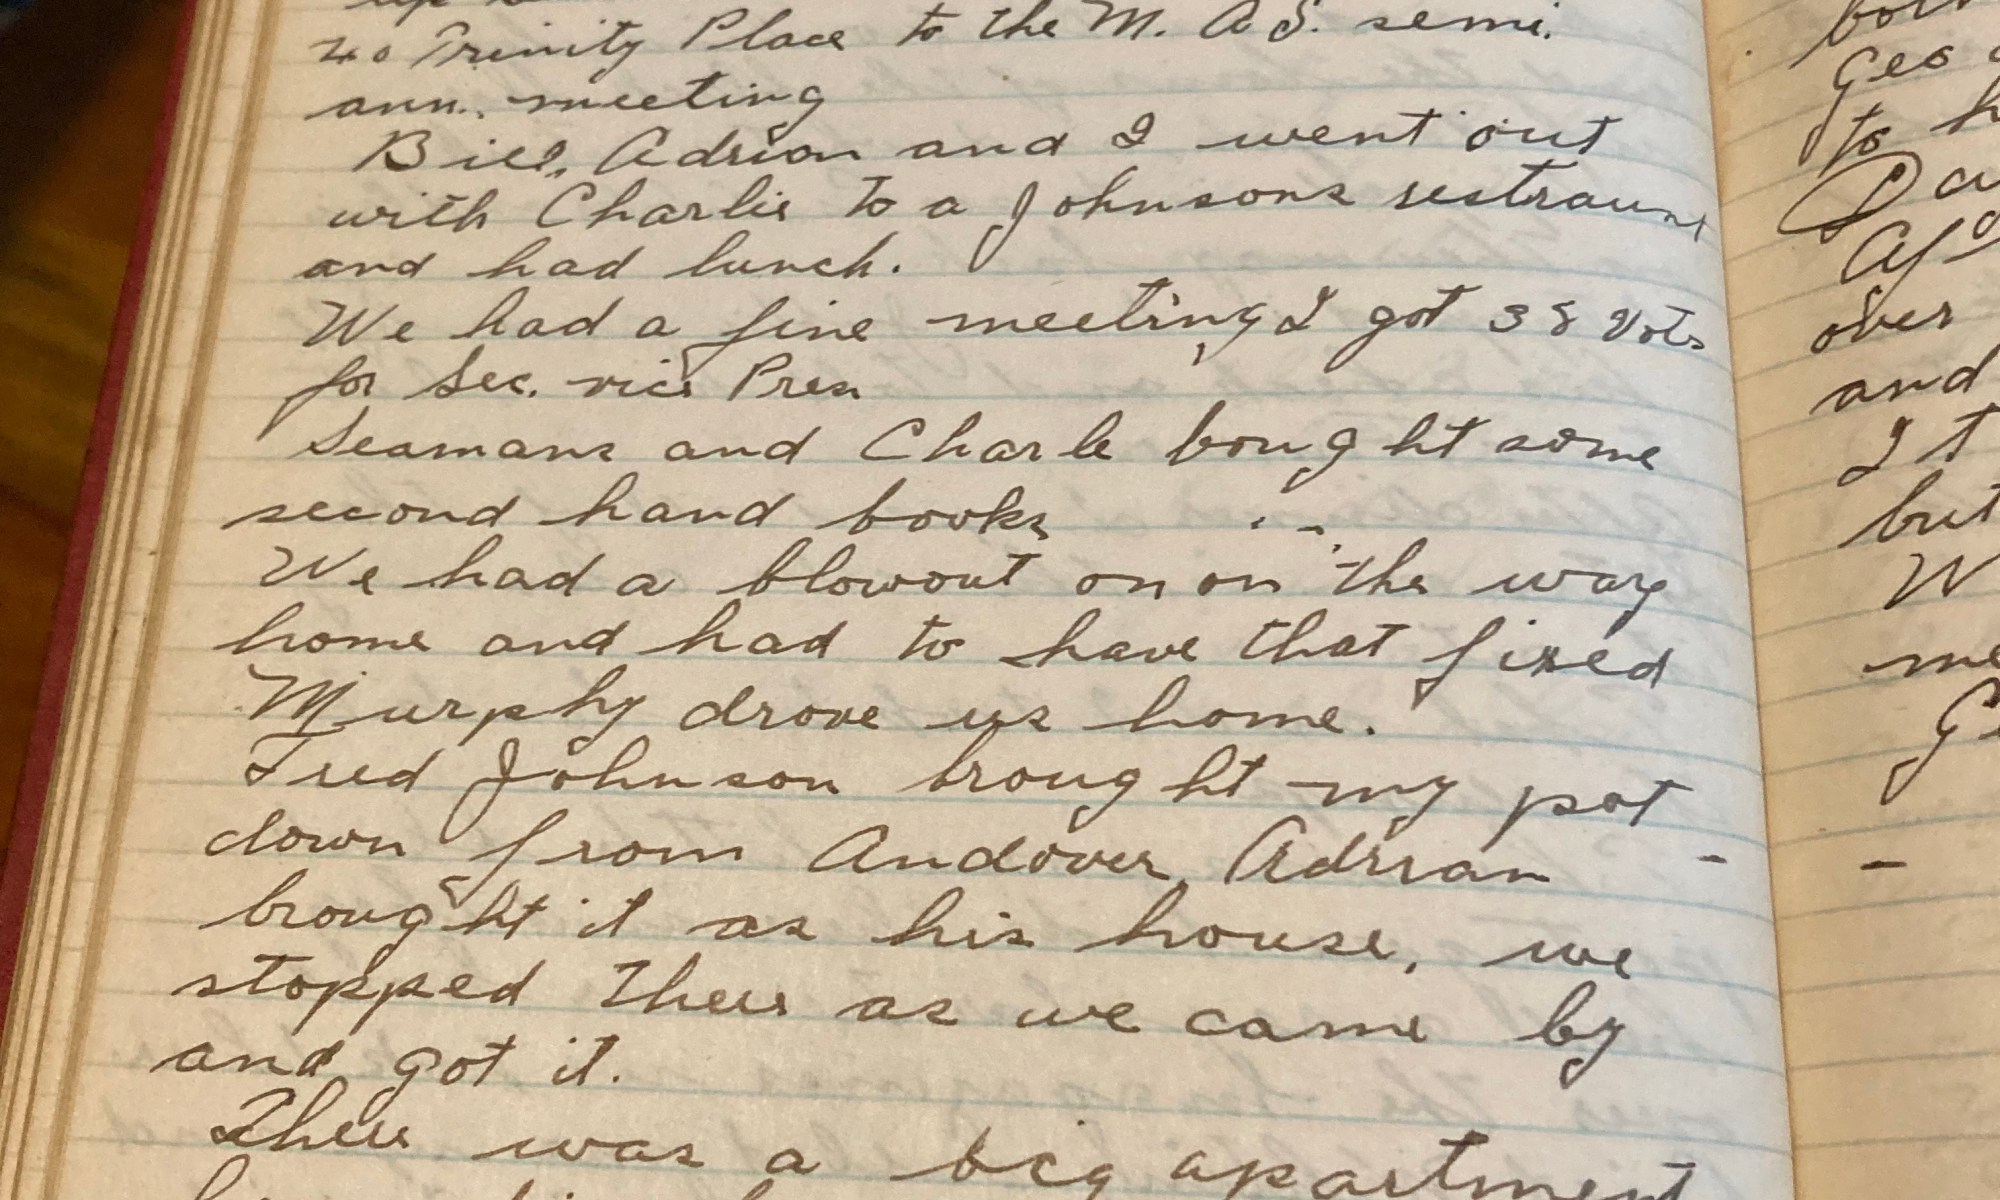 40 Trinity Place to the M. A S. semi.
ann.. meeting
Bill, Adrian and I went out
with Charlie to a Johnsons restraunt
and had lunch.
We had a fine meeting, I got 38 Vots
for Sec. vice Pres
Seamans and Charle bought some
second hand books
We had a blowout on on the way
home and had to have that fixed
Murphy drove us home.
Fred Johnson brought my pot
down from Andover, Adrian
brought it as his house, we
stopped there as we came by
and got it.
There was a big apartment
Geo
to
over
and
I t
but
W
me